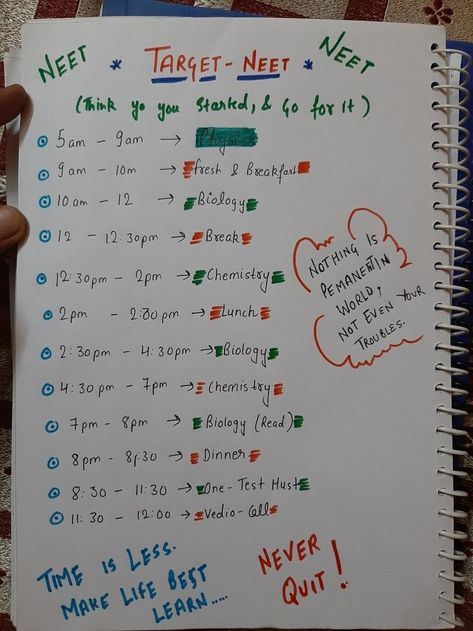 NEET * TARGET-NEET * NEET
(Think yo you started, & Go for it)
5am - 9am → Physics
9am - 10m → fresh & Breakfast
10am - 12 → Biology
12 - 12:30pm → Break
12:30pm - 2pm → Chemistry
2pm - 2:30pm → Lunch
2:30pm - 4:30pm → Biology
4:30pm - 7pm → Chemistry
7pm - 8pm → Biology (Read)
8pm - 8:30pm → Dinner
8:30 - 11:30 → One-Test Must
11:30 - 12:00 → Vedio-Call
NOTHING IS
PEMANENTIN
WORLD,
NOT EVEN YOUR
TROUBLES.
TIME IS LESS.
MAKE LIFE BEST
LEARN.....
NEVER
QUIT!